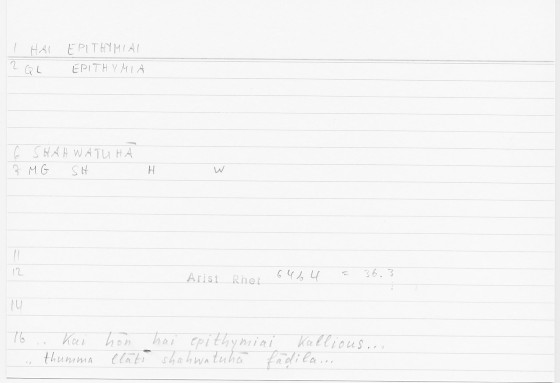 1 HAI EPITHYMIAI
2 GL EPITHYMIA
6 SHAHWATUHĀ
7 MG SH H W
11
12 Arist Rhet 64b4 = 36.3
14
16 .. Kai hōn hai epithymiai kallious...
.. thumma llātī shahwatuhā fāḍila...